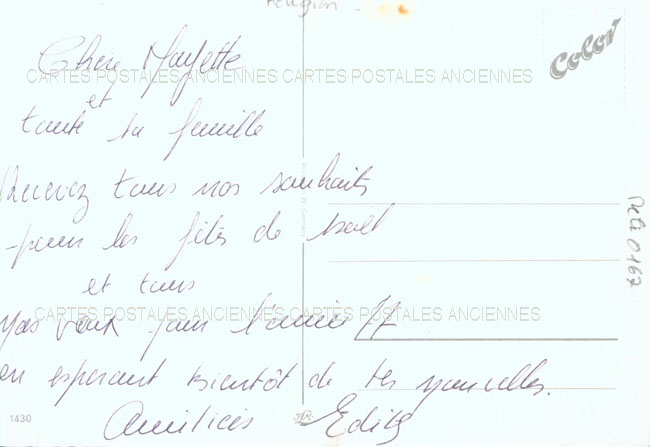 Religion
Color
Chère Mayette
CARTES POSTALES ANCIENNES CARTES POSTALES ANCIENNES
et
toute ta famille
Recevez tous nos souhaits
pour les fêtes de Noël
et tous
CARTES POSTALES ANCIENNES CARTES POSTALES ANCIENNES
nos vœux pour l'année 77
en esperant bientôt de tes nouvelles.
Amitiés Edith
1430
0167